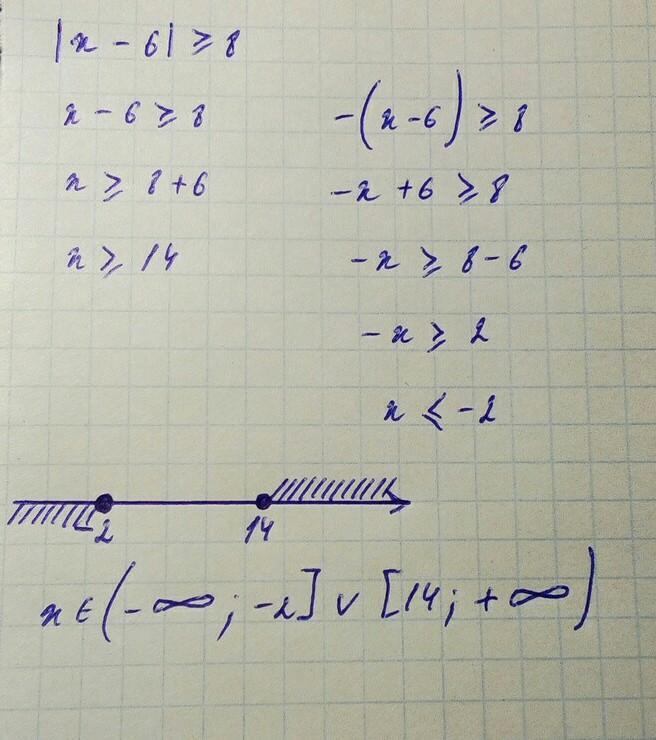 |x - 6| ≥ 8
x - 6 ≥ 8
x ≥ 8 + 6
x ≥ 14
-(x - 6) ≥ 8
-x + 6 ≥ 8
-x ≥ 8 - 6
-x ≥ 2
x ≤ -2
-2 14
x ∈ (-∞; -2] ∨ [14; +∞)